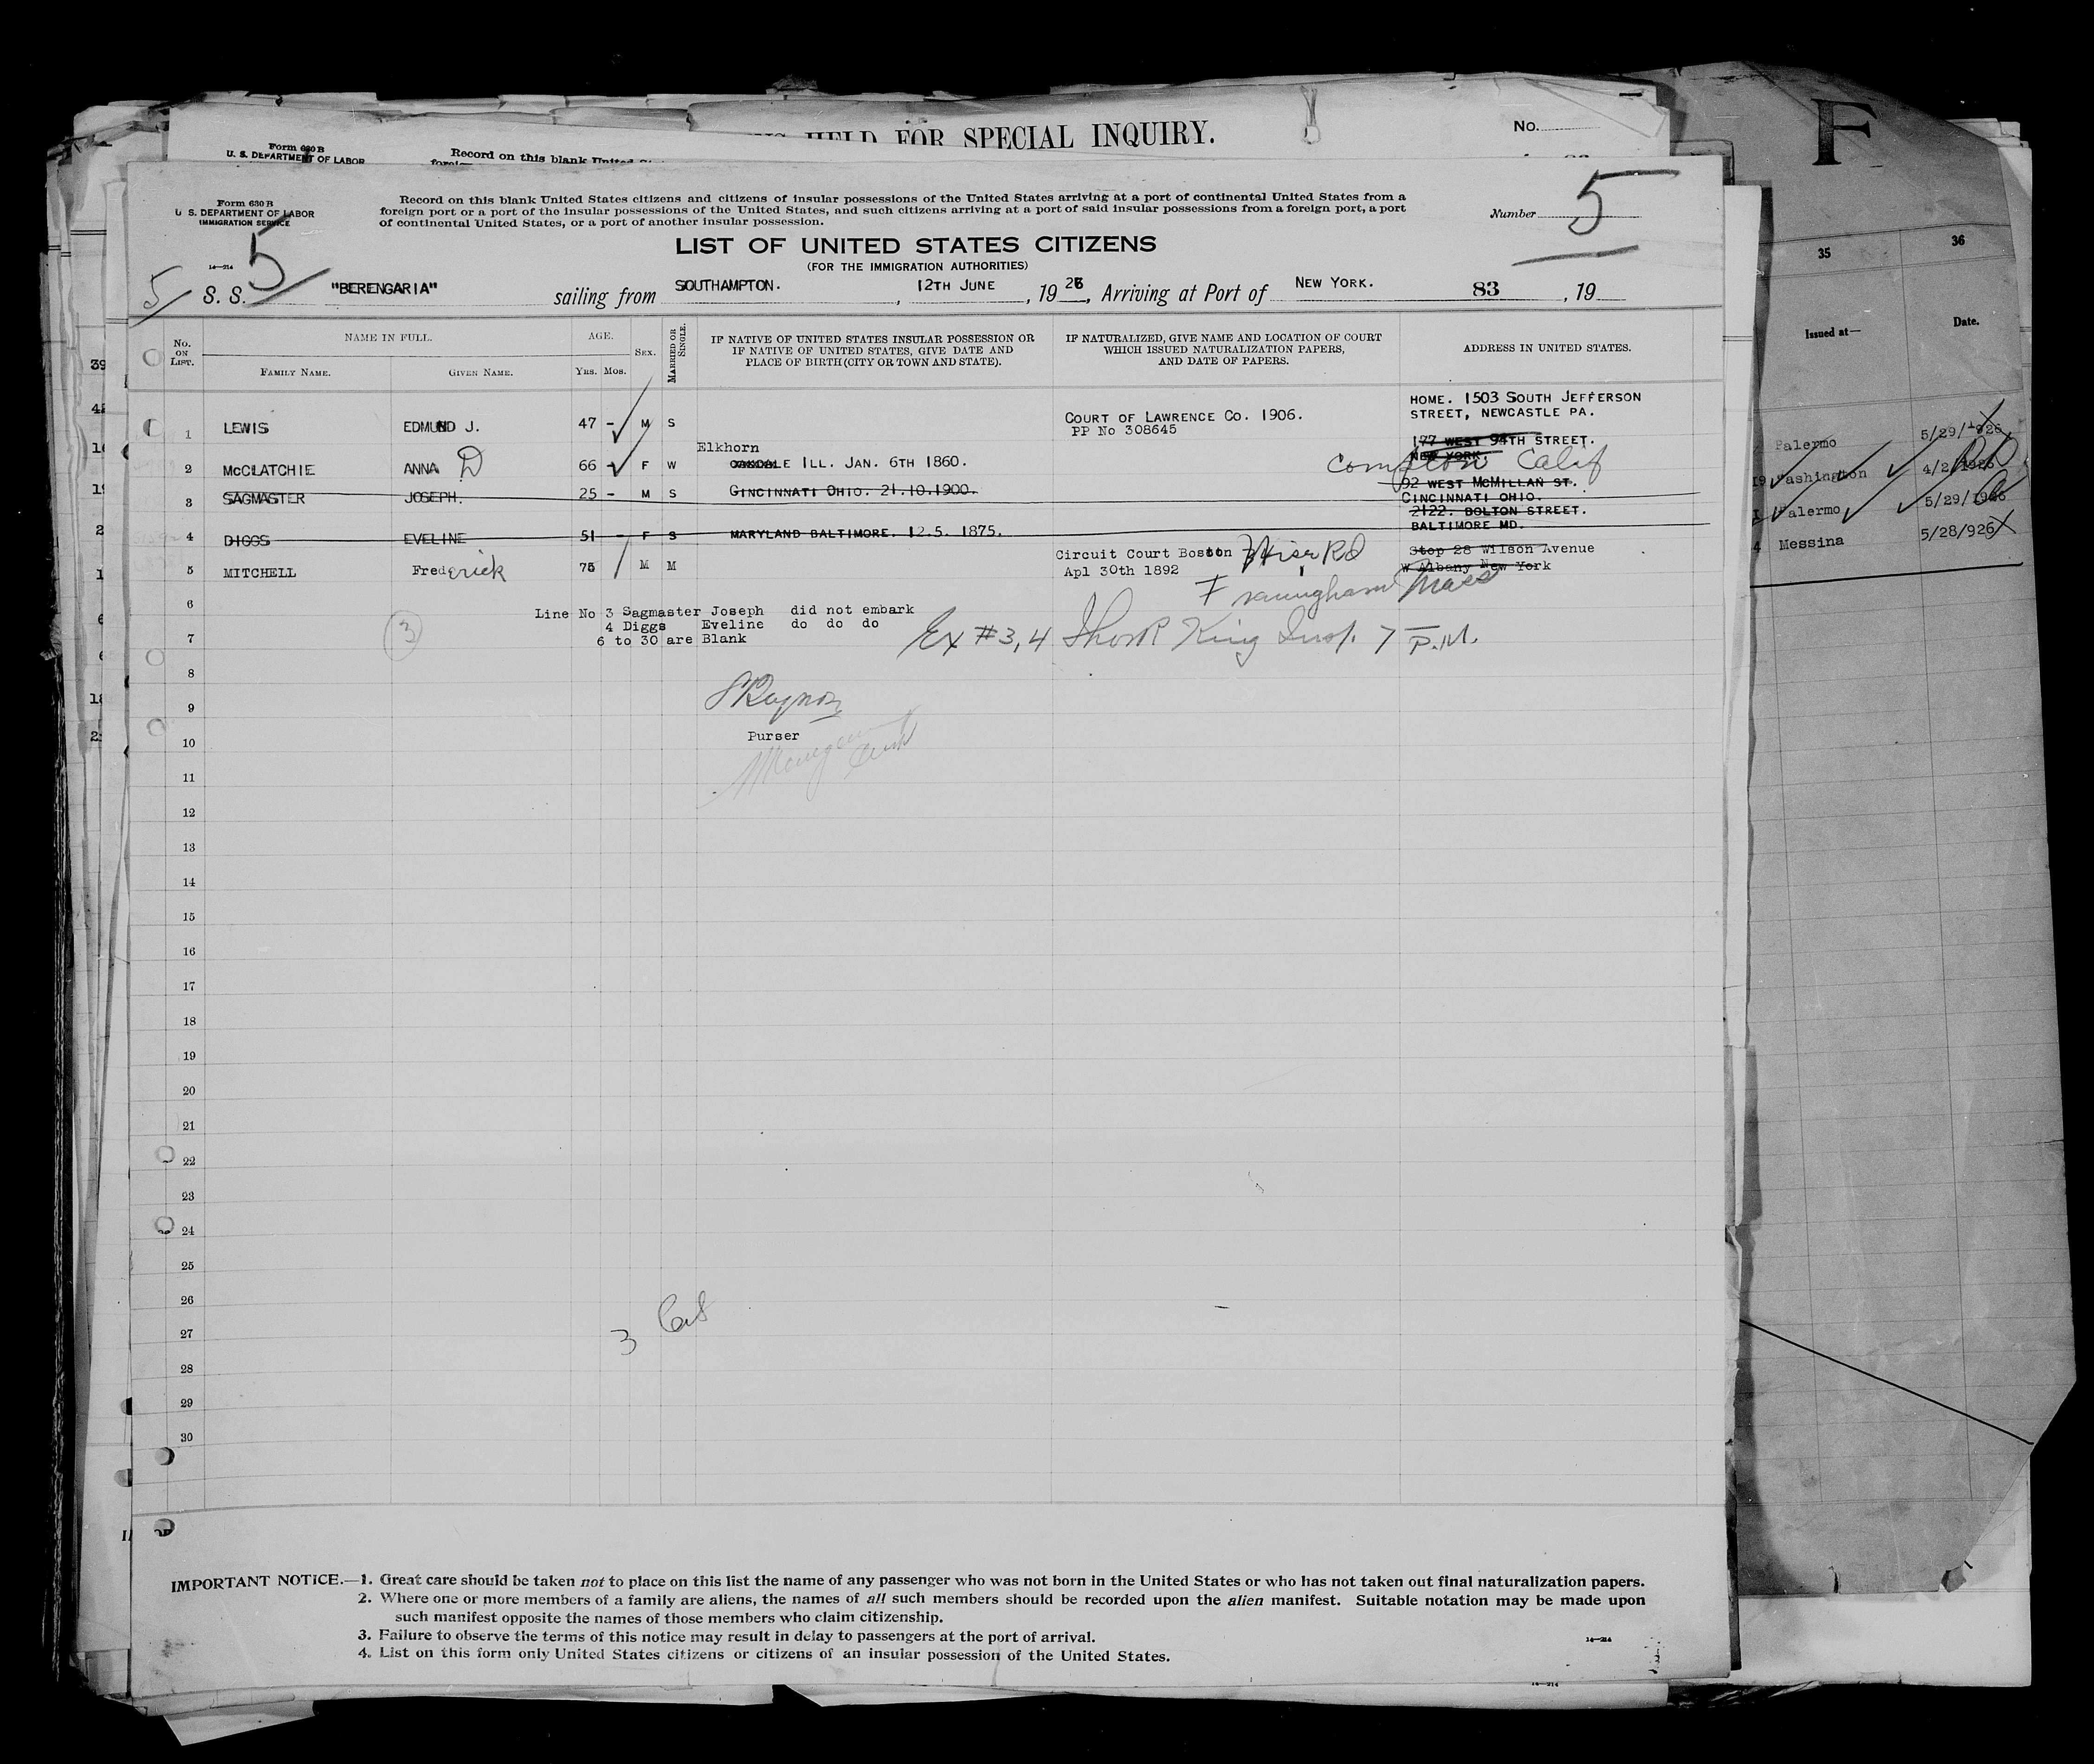 HELD FOR SPECIAL INQUIRY.
No.
F
Form 630 B
U. S. DEPARTMENT OF LABOR
Record on this blank United
35
36
Issued at—
Date.
Palermo 5/29/1926
Washington 4/2/1926
Palermo 5/29/1926
Messina 5/28/926
Form 630 B
U. S. DEPARTMENT OF LABOR
IMMIGRATION SERVICE
14—214
Record on this blank United States citizens and citizens of insular possessions of the United States arriving at a port of continental United States from a
foreign port or a port of the insular possessions of the United States, and such citizens arriving at a port of said insular possessions from a foreign port, a port
of continental United States, or a port of another insular possession.
Number 5
LIST OF UNITED STATES CITIZENS
(FOR THE IMMIGRATION AUTHORITIES)
5 5
S. S. "BERENGARIA" sailing from SOUTHAMPTON. , 12TH JUNE , 1926, Arriving at Port of NEW YORK. 83 , 19
No. ON LIST.
NAME IN FULL.
FAMILY NAME. GIVEN NAME.
AGE.
YRS. MOS.
SEX.
MARRIED OR SINGLE.
IF NATIVE OF UNITED STATES INSULAR POSSESSION OR
IF NATIVE OF UNITED STATES, GIVE DATE AND
PLACE OF BIRTH (CITY OR TOWN AND STATE).
IF NATURALIZED, GIVE NAME AND LOCATION OF COURT
WHICH ISSUED NATURALIZATION PAPERS,
AND DATE OF PAPERS.
ADDRESS IN UNITED STATES.
HOME. 1503 SOUTH JEFFERSON
STREET, NEWCASTLE PA.
1 LEWIS EDMUND J. 47 - M S COURT OF LAWRENCE CO. 1906.
PP No 308645
177 WEST 94TH STREET.
NEW YORK.
Elkhorn
2 McCLATCHIE ANNA D 66 - F W OAKDALE ILL. JAN. 6TH 1860. Compton Calif
92 WEST McMILLAN ST.
3 SAGMASTER JOSEPH. 25 - M S CINCINNATI OHIO. 21.10.1900. CINCINNATI OHIO.
2122. BOLTON STREET.
BALTIMORE MD.
4 DIGGS EVELINE 51 - F S MARYLAND BALTIMORE. 12.5. 1875.
Circuit Court Boston Rd Stop 28 Wilson Avenue
5 MITCHELL Frederick 75 M M Apl 30th 1892 W Albany New York
Framingham Mass
6
Line No 3 Sagmaster Joseph did not embark
4 Diggs Eveline do do do
7 3 6 to 30 are Blank Ex #3, 4 King Insp. 7 P.M.
8
9
10 Purser
11
12
13
14
15
16
17
18
19
20
21
22
23
24
25
26
27 3
28
29
30
IMPORTANT NOTICE.—1. Great care should be taken not to place on this list the name of any passenger who was not born in the United States or who has not taken out final naturalization papers.
2. Where one or more members of a family are aliens, the names of all such members should be recorded upon the alien manifest. Suitable notation may be made upon
such manifest opposite the names of those members who claim citizenship.
3. Failure to observe the terms of this notice may result in delay to passengers at the port of arrival.
4. List on this form only United States citizens or citizens of an insular possession of the United States.
14—214